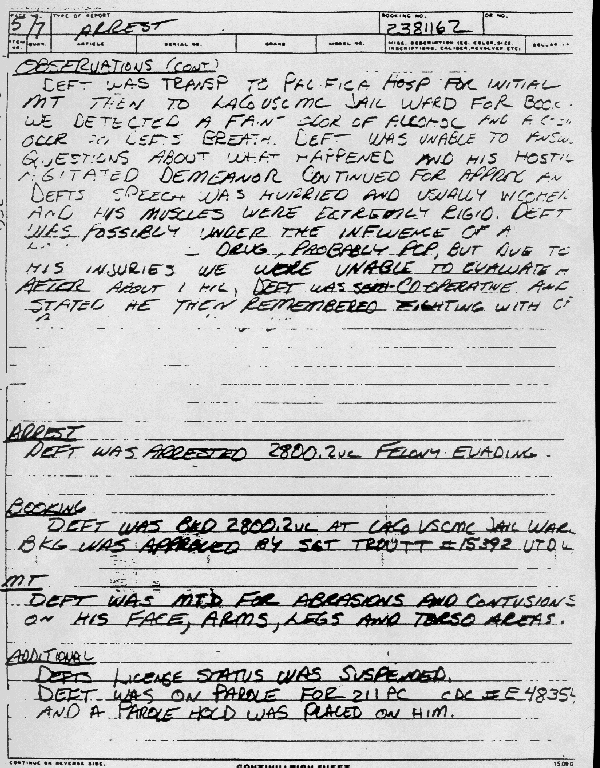 PAGE NO. TYPE OF REPORT BOOKING NO. DR NO.
5/7 ARREST 2381162
ITEM NO. QUAN. ARTICLE SERIAL NO. BRAND MODEL NO. MISC. DESCRIPTION (EG. COLOR, SIZE, INSCRIPTIONS, CALIBER, REVOLVER, ETC) DOLLAR
OBSERVATIONS (CONT)
DEFT WAS TRANSP TO PACIFICA HOSP FOR INITIAL
MT THEN TO LACOUSCMC JAIL WARD FOR BOOK
WE DETECTED A FAINT ODOR OF ALCOHOL AND A
ODOR ON DEFTS BREATH. DEFT WAS UNABLE TO ANSW
QUESTIONS ABOUT WHAT HAPPENED AND HIS HOSTIL
AGITATED DEMEANOR CONTINUED FOR APPROX AN
DEFTS SPEECH WAS HURRIED AND USUALLY INCOHER
AND HIS MUSCLES WERE EXTREMLY RIGID. DEFT
WAS POSSIBLY UNDER THE INFLUENCE OF A
DRUG, PROBABLY PCP, BUT DUE TO
HIS INJURIES WE WERE UNABLE TO EVALUATE
AFTER ABOUT 1 HR, DEFT WAS CO-OPERATIVE AND
STATED HE THEN REMEMBERED FIGHTING WITH OF
ARREST
DEFT WAS ARRESTED 2800.2VC FELONY EVADING.
BOOKING
DEFT WAS BKD 2800.2VC AT LACOUSCMC JAIL WAR
BKG WAS APPROVED BY SGT TROUTT #15392 VTD
MT
DEFT WAS MT'D FOR ABRASIONS AND CONTUSIONS
ON HIS FACE, ARMS, LEGS AND TORSO AREAS.
ADDITIONAL
DEFTS LICENSE STATUS WAS SUSPENDED.
DEFT WAS ON PAROLE FOR 211PC CDC # E4835
AND A PAROLE HOLD WAS PLACED ON HIM.
CONTINUE ON REVERSE SIDE. CONTINUATION SHEET 15.09.0